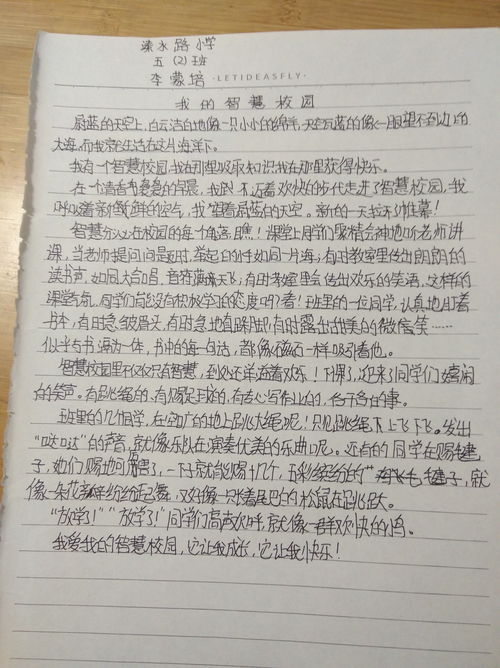 溧水路小学
五(2)班
李蒙培 ·LETIDEASFLY·
我的智慧校园
蔚蓝的天空上,白云洁白地像一只小小的绵羊,天空瓦蓝的像一眼望不到边的
大海,而我就生活在这片海洋下。
我有一个智慧校园,我在那里吸取知识,我在那里获得快乐。
在一个清香袅袅的早晨,我迈着欢快的步伐走进了智慧校园,我
呼吸着新鲜的空气,我望着蔚蓝的天空。新的一天拉开了帷幕!
智慧分散在校园的每个角落,瞧!课堂上同学们聚精会神地听老师讲
课,当老师提问问题时,举起的手如同一片海;有时教室里传出朗朗的
读书声,如同大合唱,音符满天飞;有时教室里会传出欢乐的笑语,这样的
课堂气氛,同学们能没有积极学习的态度吗?看!班里的一位同学,认真地盯着
书本,有时急皱眉头,有时急地直跺脚,有时露出甜美的微笑……
似乎与书融为一体,书中的每一句话,都像磁石一样吸引着他。
智慧校园里不仅仅只有智慧,到处还洋溢着欢乐!下课了,迎来了同学们嬉闹
的笑声。有跳绳的、有踢足球的、有专心写作业的,各干各的事。
班里的几个同学,在空旷的地上跳大绳呢!只见跳绳上飞下飞。发出
“哒哒”的声音,就像乐队在演奏优美的乐曲呢。还有的同学在踢毽
子,她们踢地可厉害了,一下子就能踢十几个,五彩缤纷的毽子,就
像一朵花瓣在纷纷起舞,又好像一只长着尾巴的松鼠在跳跃。
“放学!”“放学了!”同学们高声欢呼,就像一群欢快的小鸟。
我爱我的智慧校园,它让我成长,它让我快乐!